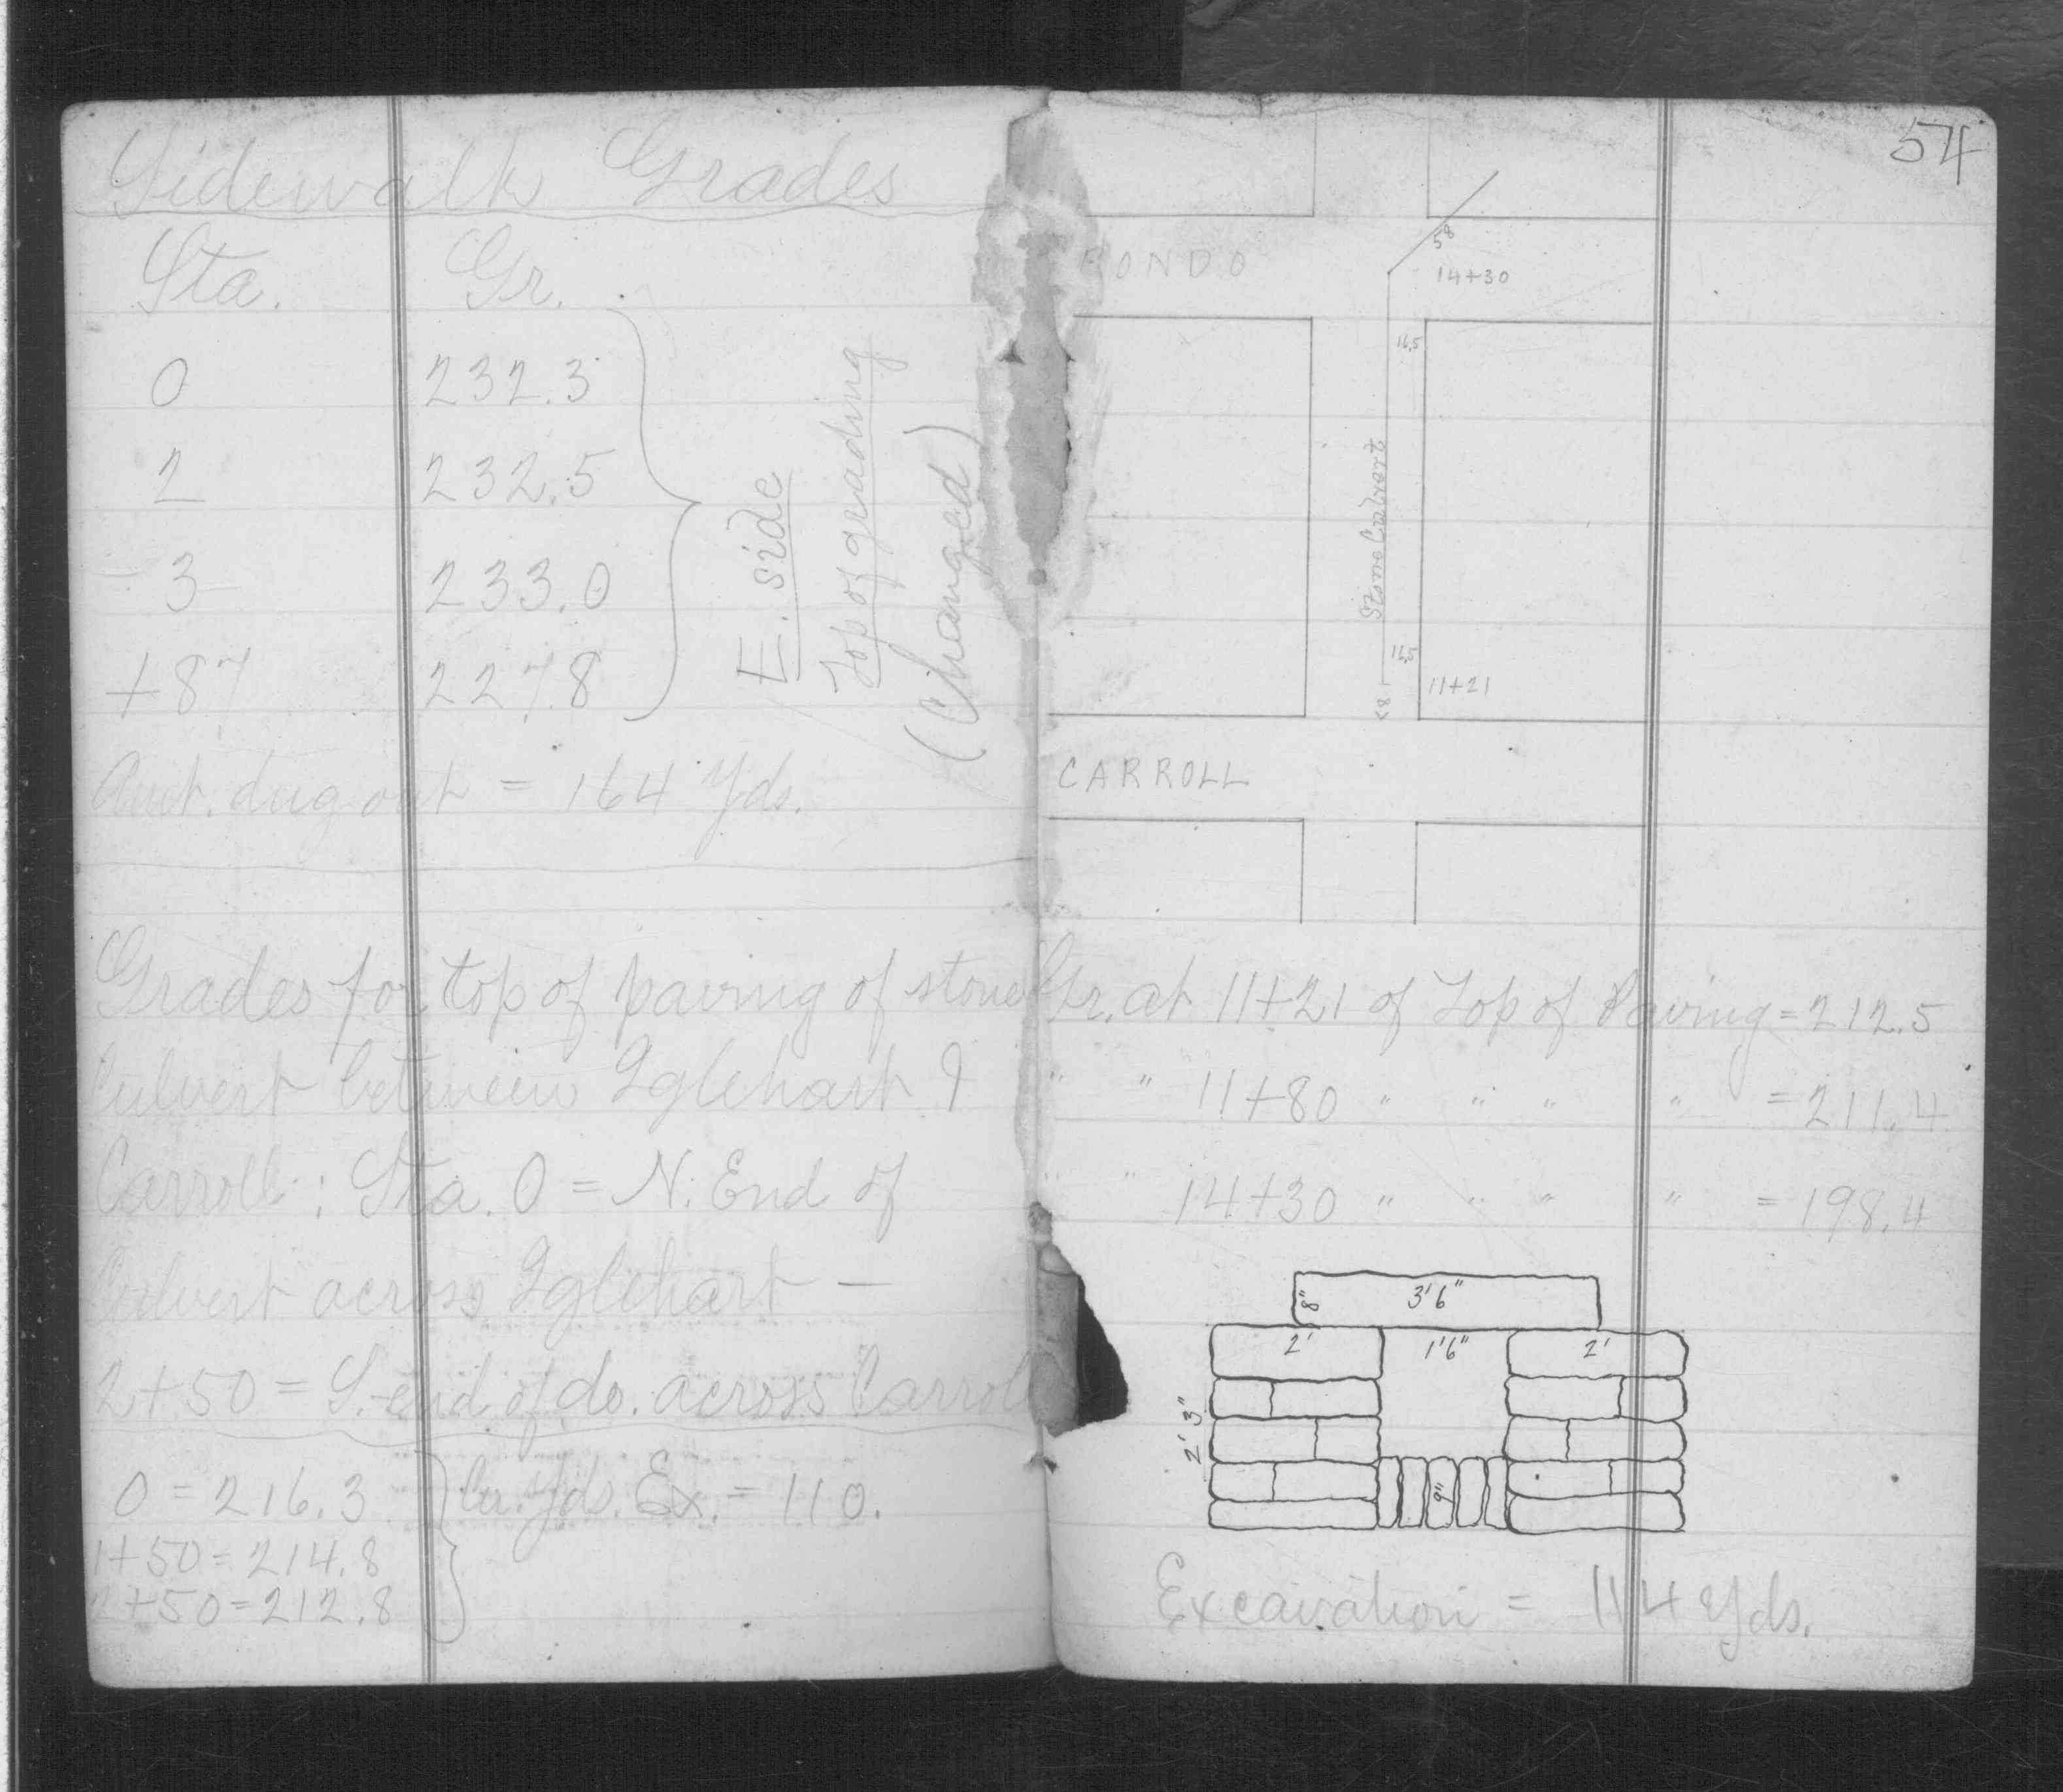 Sidewalk Grades
Sta. Gr.
0 232.3
2 232.5
3 233.0
+87 227.8
E. side
Top of grading
(Changed)
Amt. dug out = 164 Yds.
Grades for top of paving of stone
Culvert between Iglehart &
Carroll: Sta. 0 = N. End of
Culvert across Iglehart —
2+50 = S. end of do. across Carroll
0 = 216.3
1+50 = 214.8
2+50 = 212.8
Cu. Yds. Ex. = 110.
54
RONDO
58
14+30
16.5
Stone Culvert
16.5
11+21
18
CARROLL
Gr. at 11+21 of Top of Paving = 212.5
" " 11+80 " " " " = 211.4
" " 14+30 " " " " = 198.4
8" 3'6"
2' 1'6" 2'
2' 3"
9"
Excavation = 114 Yds.